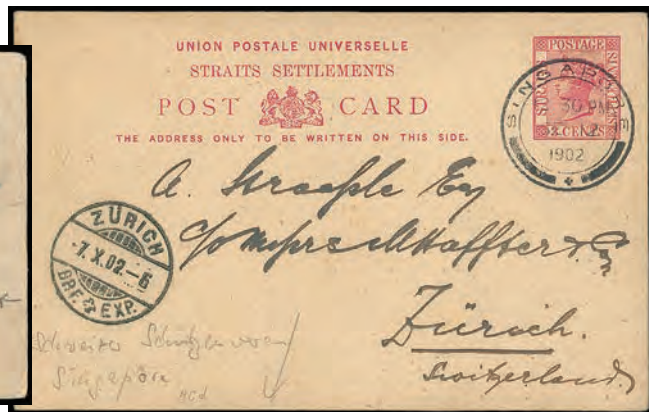 UNION POSTALE UNIVERSELLE
STRAITS SETTLEMENTS
POST CARD
THE ADDRESS ONLY TO BE WRITTEN ON THIS SIDE.
POSTAGE
3 CENTS
SINGAPORE
30 PM
1902
A. Straehle Esq
c/o Messrs
Zürich.
Switzerland.
ZÜRICH
-7.X.02.-6
BRF. EXP.
Schweizer
Singapore